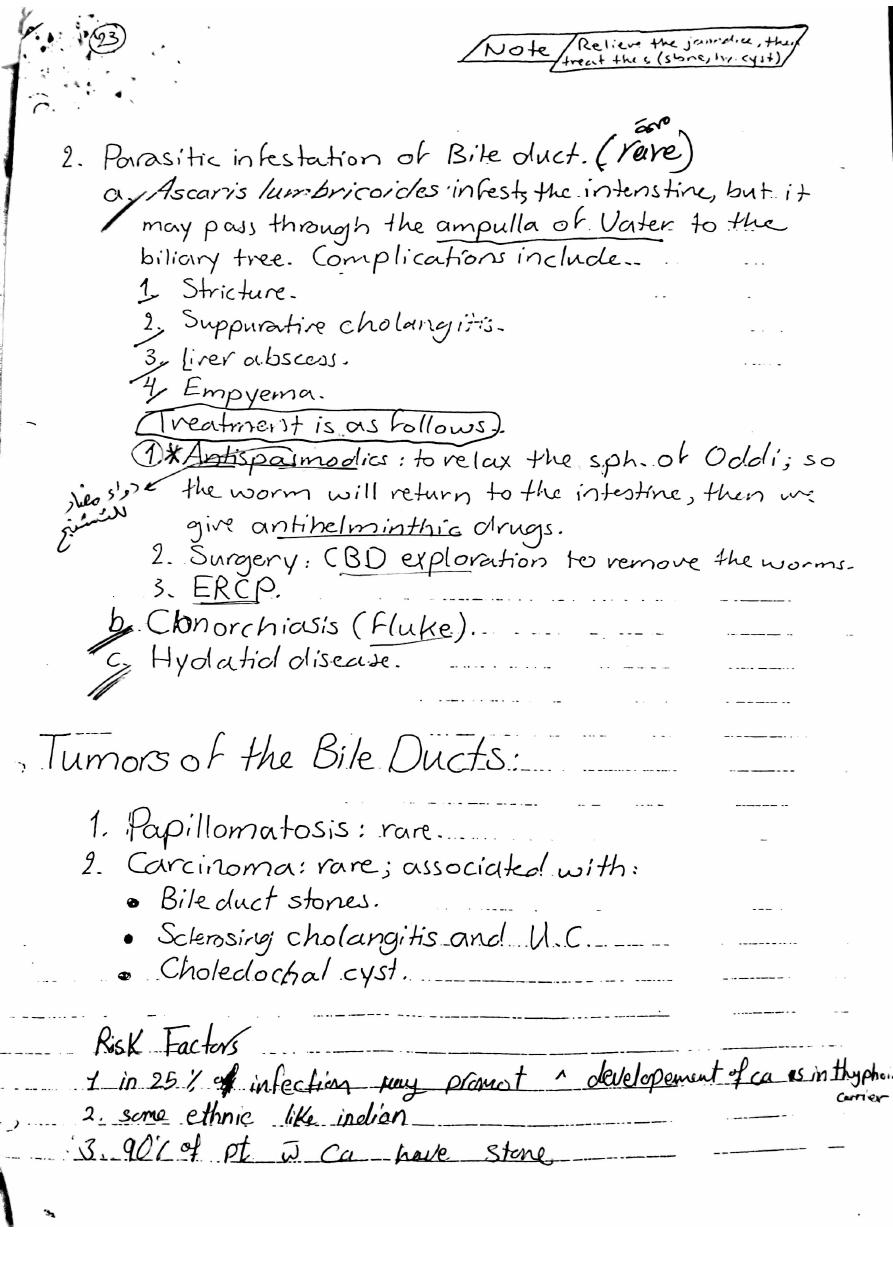 23
Note
Relieve the jaundice, then
treat the s (stone, hy. cyst)
2. Parasitic infestation of Bile duct. (rare)
a, Ascaris lumbricoides infests the intenstine, but it
may pass through the ampulla of Vater to the
biliary tree. Complications include..
1, Stricture.
2, Suppurative cholangitis.
3, Liver abscess.
4, Empyema.
Treatment is as follows.
1 * Antispasmodics : to relax the sph. of Oddi; so
دواء مضاد
للتشنج
the worm will return to the intestine, then we
give antihelminthic drugs.
2. Surgery: CBD exploration to remove the worms.
3. ERCP.
b, Clonorchiasis (Fluke).
c, Hydatid disease.
Tumors of the Bile Ducts:
1. Papillomatosis : rare.
2. Carcinoma: rare; associated with:
• Bile duct stones.
• Sclerosing cholangitis and U.C.
• Choledochal cyst.
Risk Factors
1 in 25 % of infection may promot ^ developement of ca as in thyphoi
carrier
2. some ethnic like indian
3. 90% of pt w̄ Ca have stone